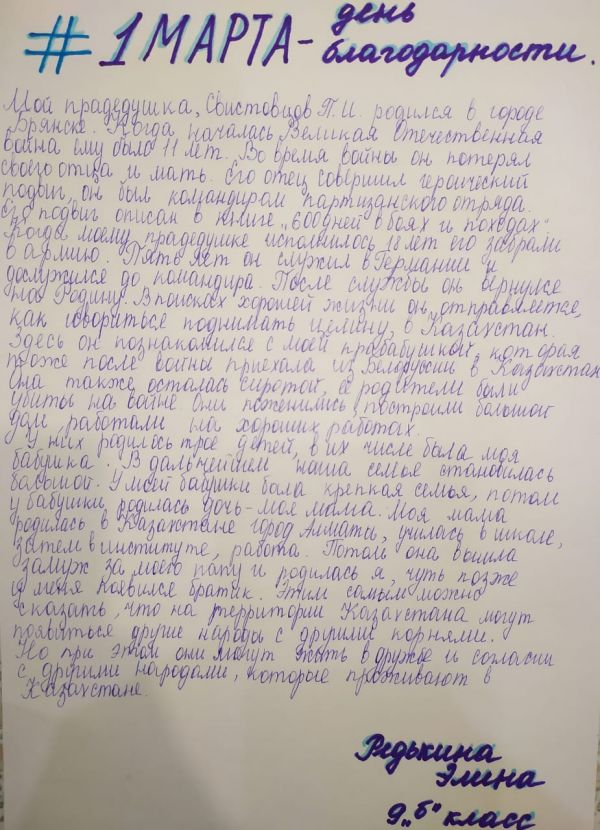 #1 МАРТА - день
благодарности.
Мой прадедушка, Свистовцов П.И. родился в городе
Брянске. Когда началась Великая Отечественная
война ему было 11 лет. Во время войны он потерял
своего отца и мать. Его отец совершил героический
подвиг, он был командиром партизанского отряда.
Его подвиг описан в книге „600 дней в боях и походах"
Когда моему прадедушке исполнилось 18 лет его забрали
в армию. Пять лет он служил в Германии и
дослужился до командира. После службы он вернулся
на Родину. В поисках хорошей жизни он отправляется,
как говориться поднимать целину, в Казахстан.
Здесь он познакомился с моей прабабушкой, которая
тоже после войны приехала из Белоруссии в Казахстан
Она также осталась сиротой, а родители были
убиты на войне. Они поженились, построили большой
дом, работали на хороших работах.
У них родилось трое детей, в их числе была моя
бабушка. В дальнейшем наша семья становилась
большой. У моей бабушки была крепкая семья, потом
у бабушки родилась дочь - моя мама. Моя мама
родилась в Казахстане город Алматы, училась в школе,
затем в институте, работа. Потом она вышла
замуж за моего папу и родилась я, чуть позже
у меня появился братик. Этим самым можно
сказать, что на территории Казахстана могут
появиться другие народы с другими корнями.
Но при этом они могут жить в дружбе и согласии
с другими народами, которые проживают в
Казахстане.
Редькина
Элина
9 „б" класс